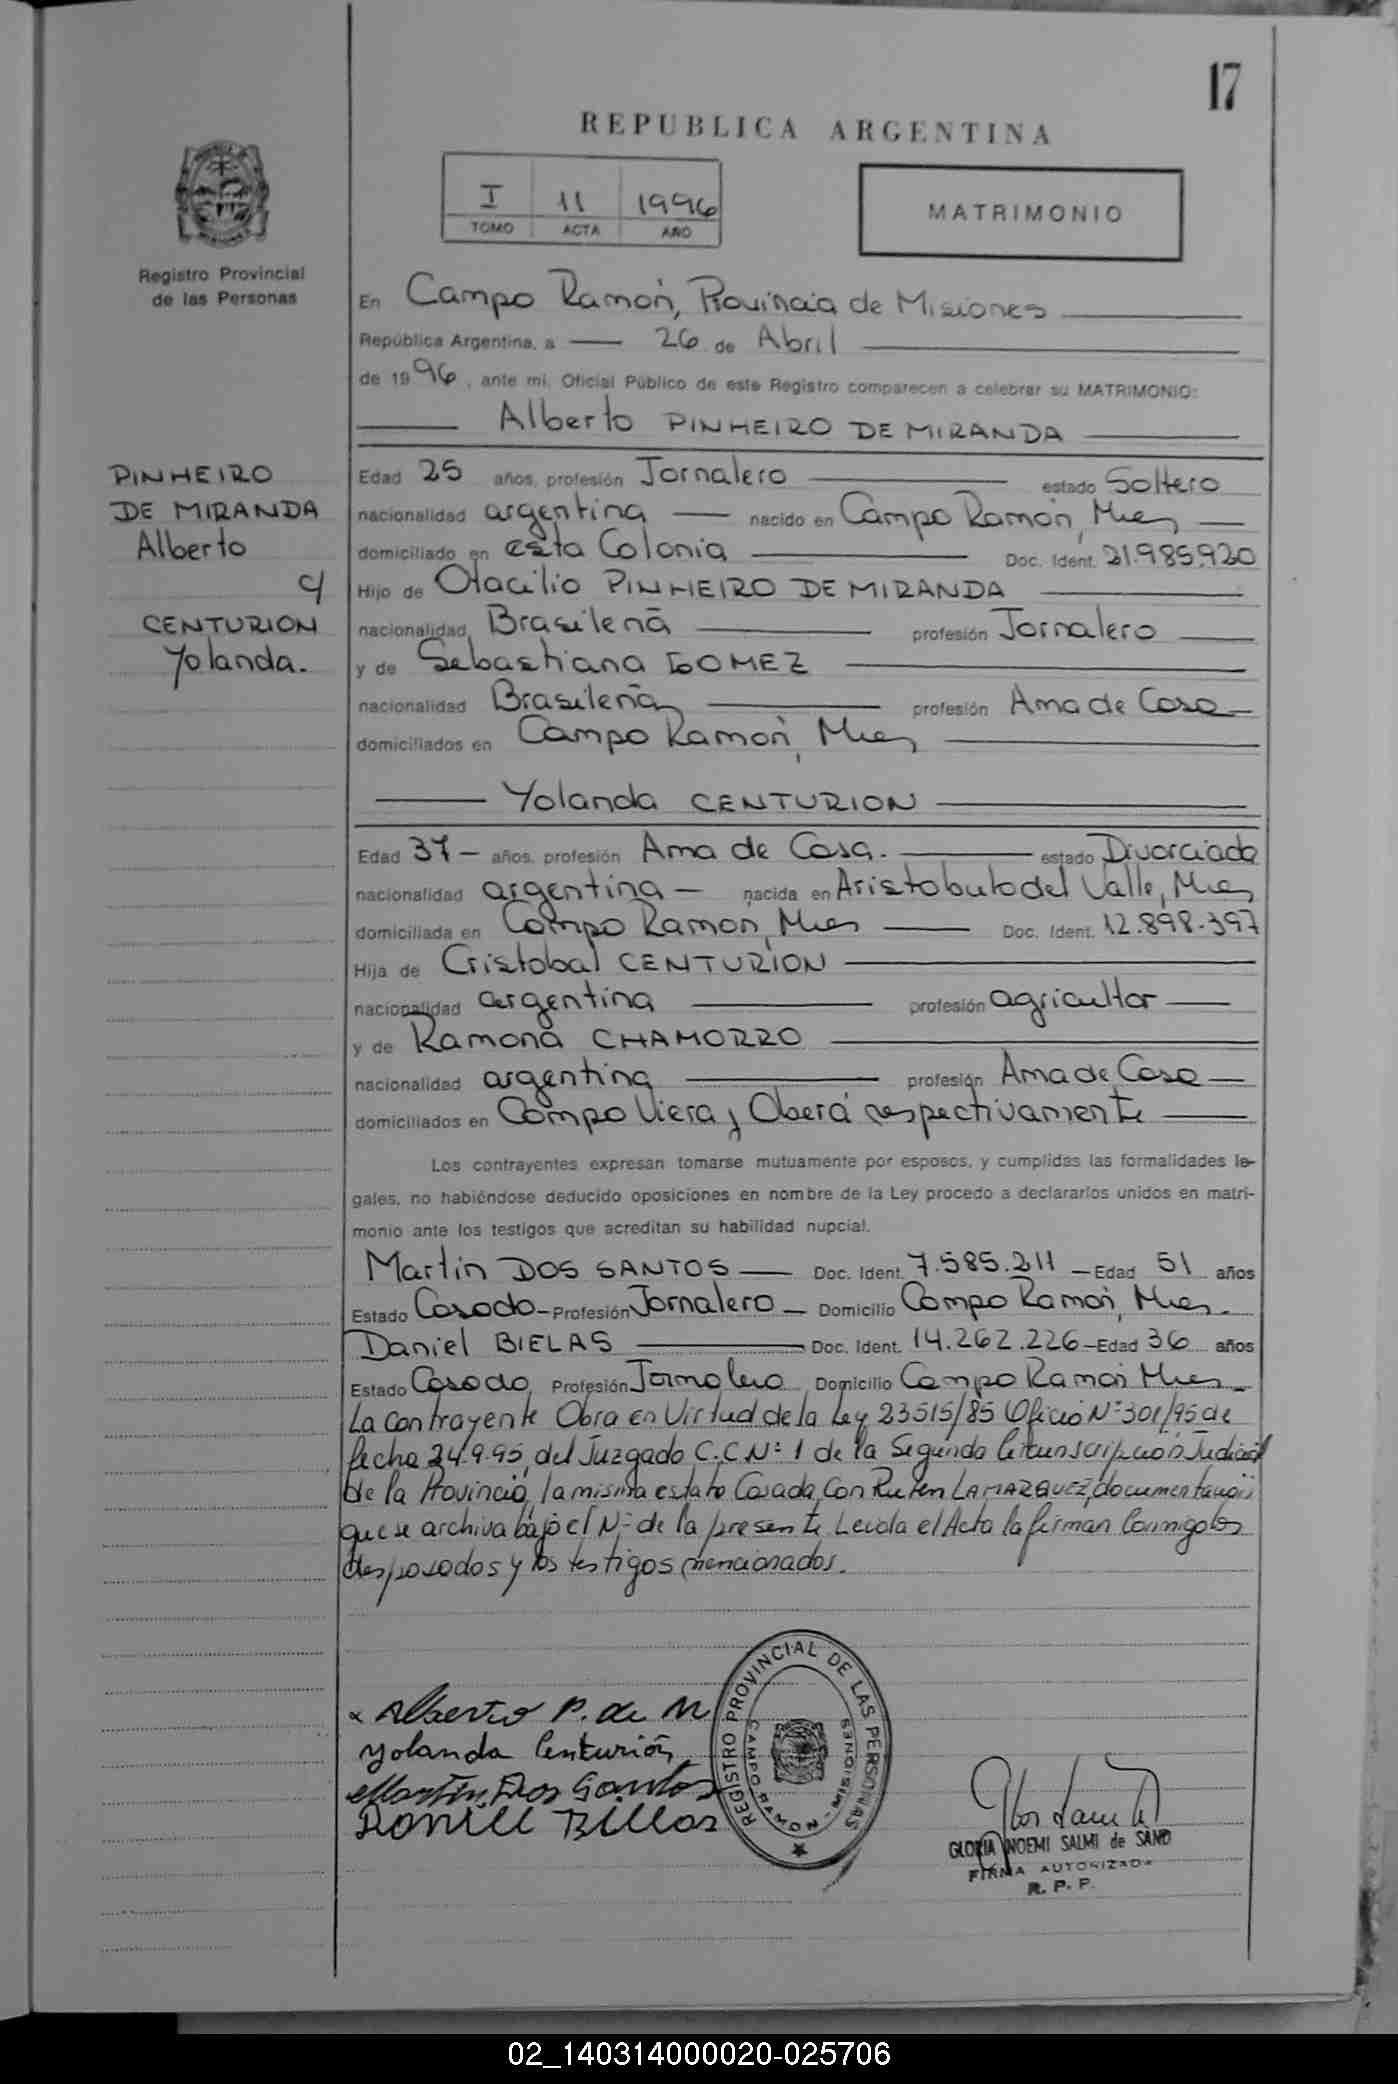 17
REPUBLICA ARGENTINA
I 11 1996
TOMO ACTA AÑO
MATRIMONIO
Registro Provincial
de las Personas
En Campo Ramón, Provincia de Misiones
República Argentina, a 26 de Abril
de 1996, ante mi, Oficial Público de este Registro comparecen a celebrar su MATRIMONIO:
Alberto PINHEIRO DE MIRANDA
PINHEIRO
DE MIRANDA
Alberto
c/
CENTURION
Yolanda.
Edad 25 años, profesión Jornalero estado Soltero
nacionalidad argentina nacido en Campo Ramón, Mnes
domiciliado en esta Colonia Doc. Ident. 21.985.920
Hijo de Otacilio PINHEIRO DE MIRANDA
nacionalidad Brasileña profesión Jornalero
y de Sebastiana GOMEZ
nacionalidad Brasileña profesión Ama de Casa
domiciliados en Campo Ramón, Mnes
Yolanda CENTURION
Edad 37 años, profesión Ama de Casa. estado Divorciada
nacionalidad argentina nacida en Aristobulo del Valle, Mnes
domiciliada en Campo Ramon, Mnes Doc. Ident. 12.898.397
Hija de Cristobal CENTURION
nacionalidad argentina profesión agricultor
y de Ramona CHAMORRO
nacionalidad argentina profesión Ama de Casa
domiciliados en Campo Viera y Oberá respectivamente
Los contrayentes expresan tomarse mutuamente por esposos, y cumplidas las formalidades le-
gales, no habiéndose deducido oposiciones en nombre de la Ley procedo a declararlos unidos en matri-
monio ante los testigos que acreditan su habilidad nupcial.
Martin DOS SANTOS Doc. Ident. 7.585.211 Edad 51 años
Estado Casado Profesión Jornalero Domicilio Campo Ramón, Mnes.
Daniel BIELAS Doc. Ident. 14.262.226 Edad 36 años
Estado Casado, Profesión Jornalero Domicilio Campo Ramón Mnes
La contrayente Obra en Virtud de la Ley 23515/85 Oficio Nº 301/95 de
fecha 24.9.95, del Juzgado C.C Nº 1 de la Segunda Circunscripción Judicial
de la Provincia, la misma estaba Casada con Ruben LAMARQUEZ, documentación
que se archiva bajo el Nº de la presente Leida el Acta la firman conmigo los
desposados y los testigos mencionados.
Alberto P. de M
Yolanda Centurión
Martin Dos Santos
Daniel Billas
REGISTRO PROVINCIAL DE LAS PERSONAS
CAMPO RAMON - MISIONES
GLORIA NOEMI SALMI de SAND
FIRMA AUTORIZADA
R. P. P.
02_140314000020-025706